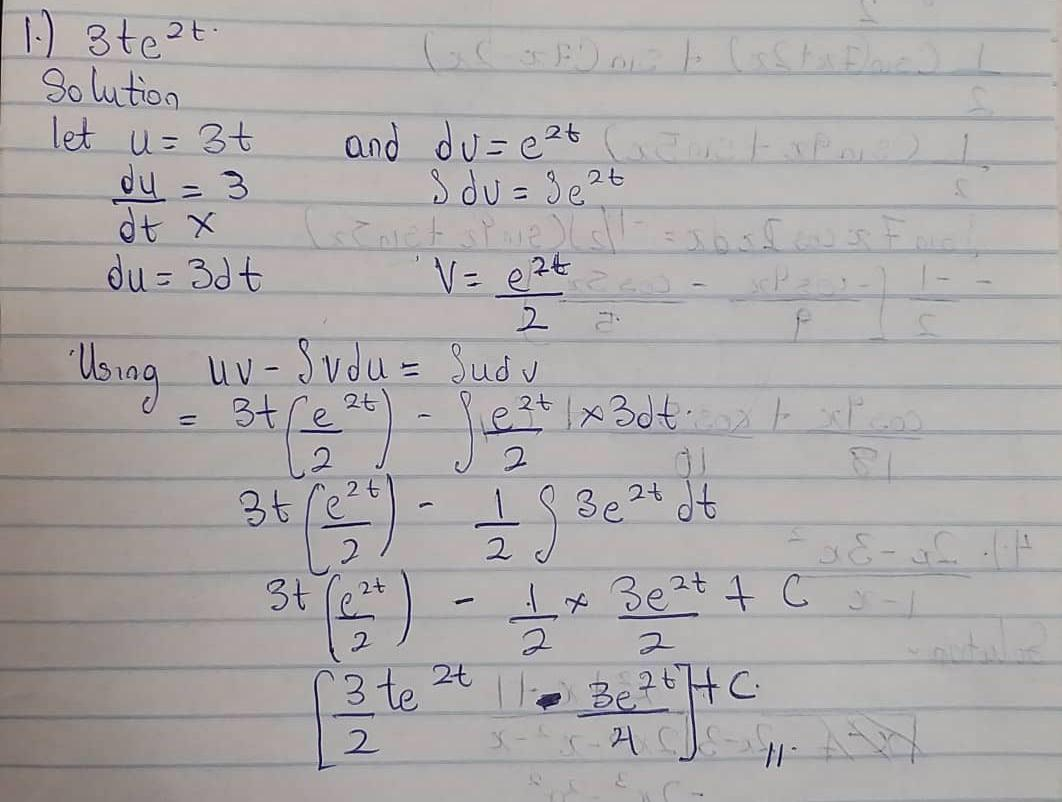 1.) 3te^2t.
Solution
let u = 3t and dv = e^2t
du/dt = 3 ∫dv = ∫e^2t
×
du = 3dt V = e^2t/2
Using uv - ∫vdu = ∫udv
= 3t(e^2t/2) - ∫e^2t/2 × 3dt.
3t(e^2t/2) - 1/2 ∫ 3e^2t dt
3t(e^2t/2) - 1/2 × 3e^2t/2 + C
[3/2 te^2t - 3e^2t/4] + C.